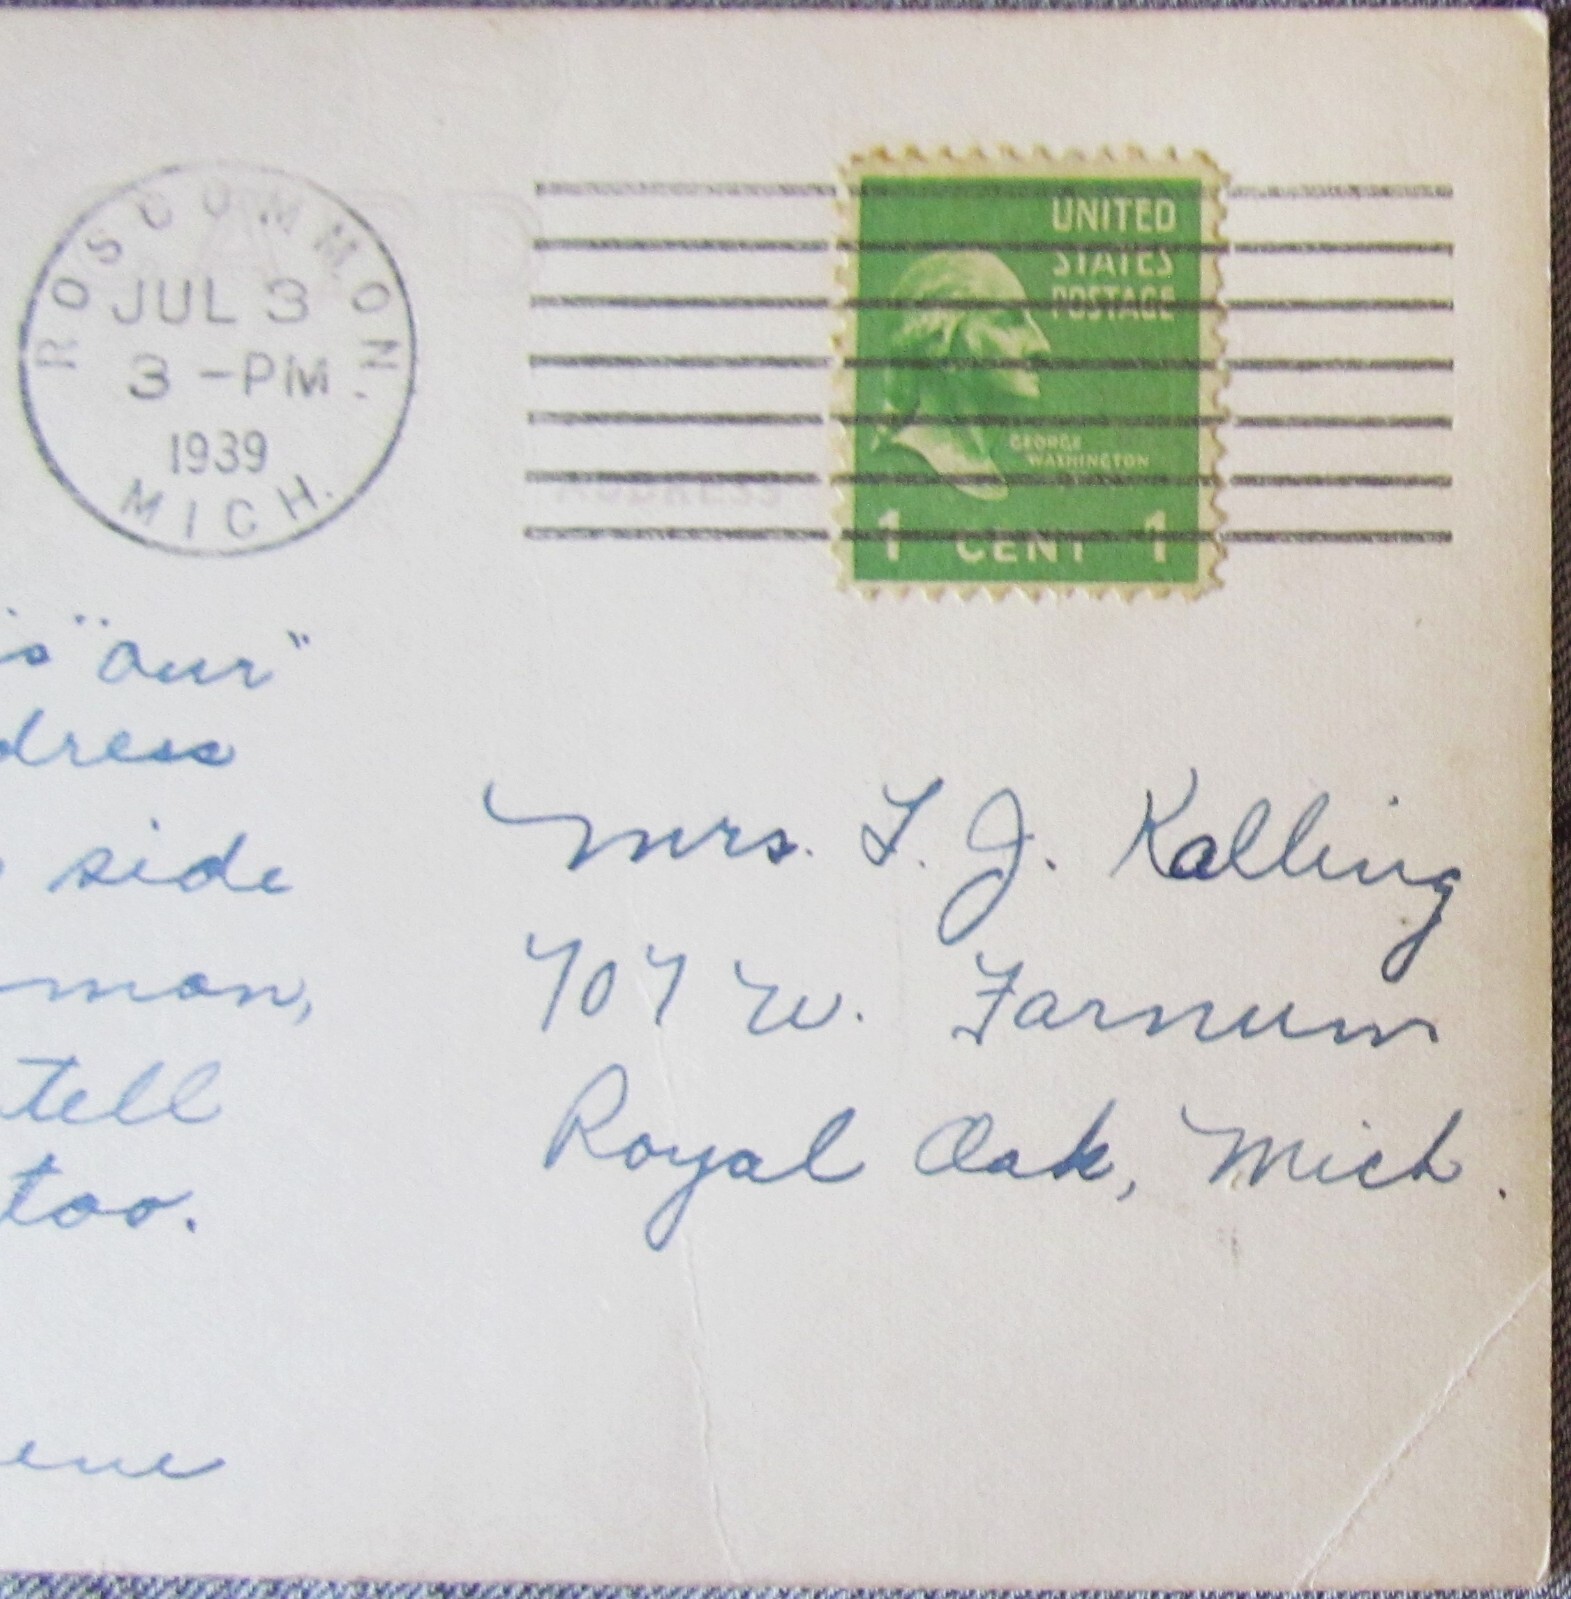 ROSCOMMON.
JUL 3
3 -PM
1939
MICH.
UNITED
STATES
POSTAGE
GEORGE
WASHINGTON
1 CENT 1
ADDRESS
"our"
dress
side
mon,
tell
too.
ene
Mrs. L. J. Kalling
707 W. Farnum
Royal Oak, Mich.